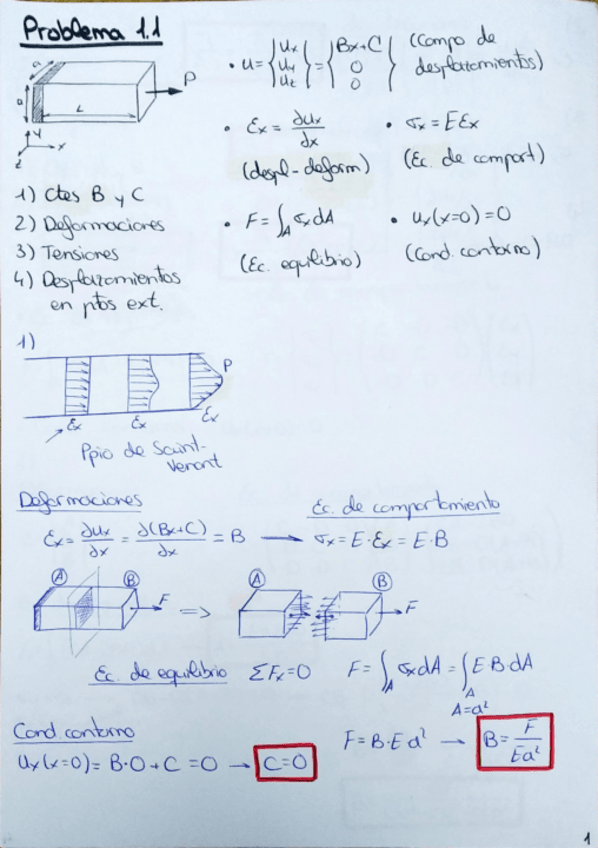 Problema 1.1
a
a
L
P
y
x
z
• u = { ux uy uz } = { Bx+C 0 0 } (Campo de desplazamientos)
• εx = ∂ux/∂x
(despl-deform)
• σx = E εx
(Ec. de comport)
• F = ∫A σx dA
(Ec. equilibrio)
• ux(x=0) = 0
(Cond. contorno)
1) Ctes B y C
2) Deformaciones
3) Tensiones
4) Desplazamientos
en ptos ext.
1)
P
εx
εx
εx
Ppio de Saint-
Venant
Deformaciones
εx = ∂ux/∂x = ∂(Bx+C)/∂x = B →
Ec. de comportamiento
σx = E·εx = E·B
A
B
F
=>
A
B
F
Ec. de equilibrio ΣFx=0 F = ∫A σx dA = ∫A E·B·dA
A=a²
Cond. contorno
ux(x=0) = B·0+C = 0 → C=0
F = B·E a² → B = F/Ea²
1